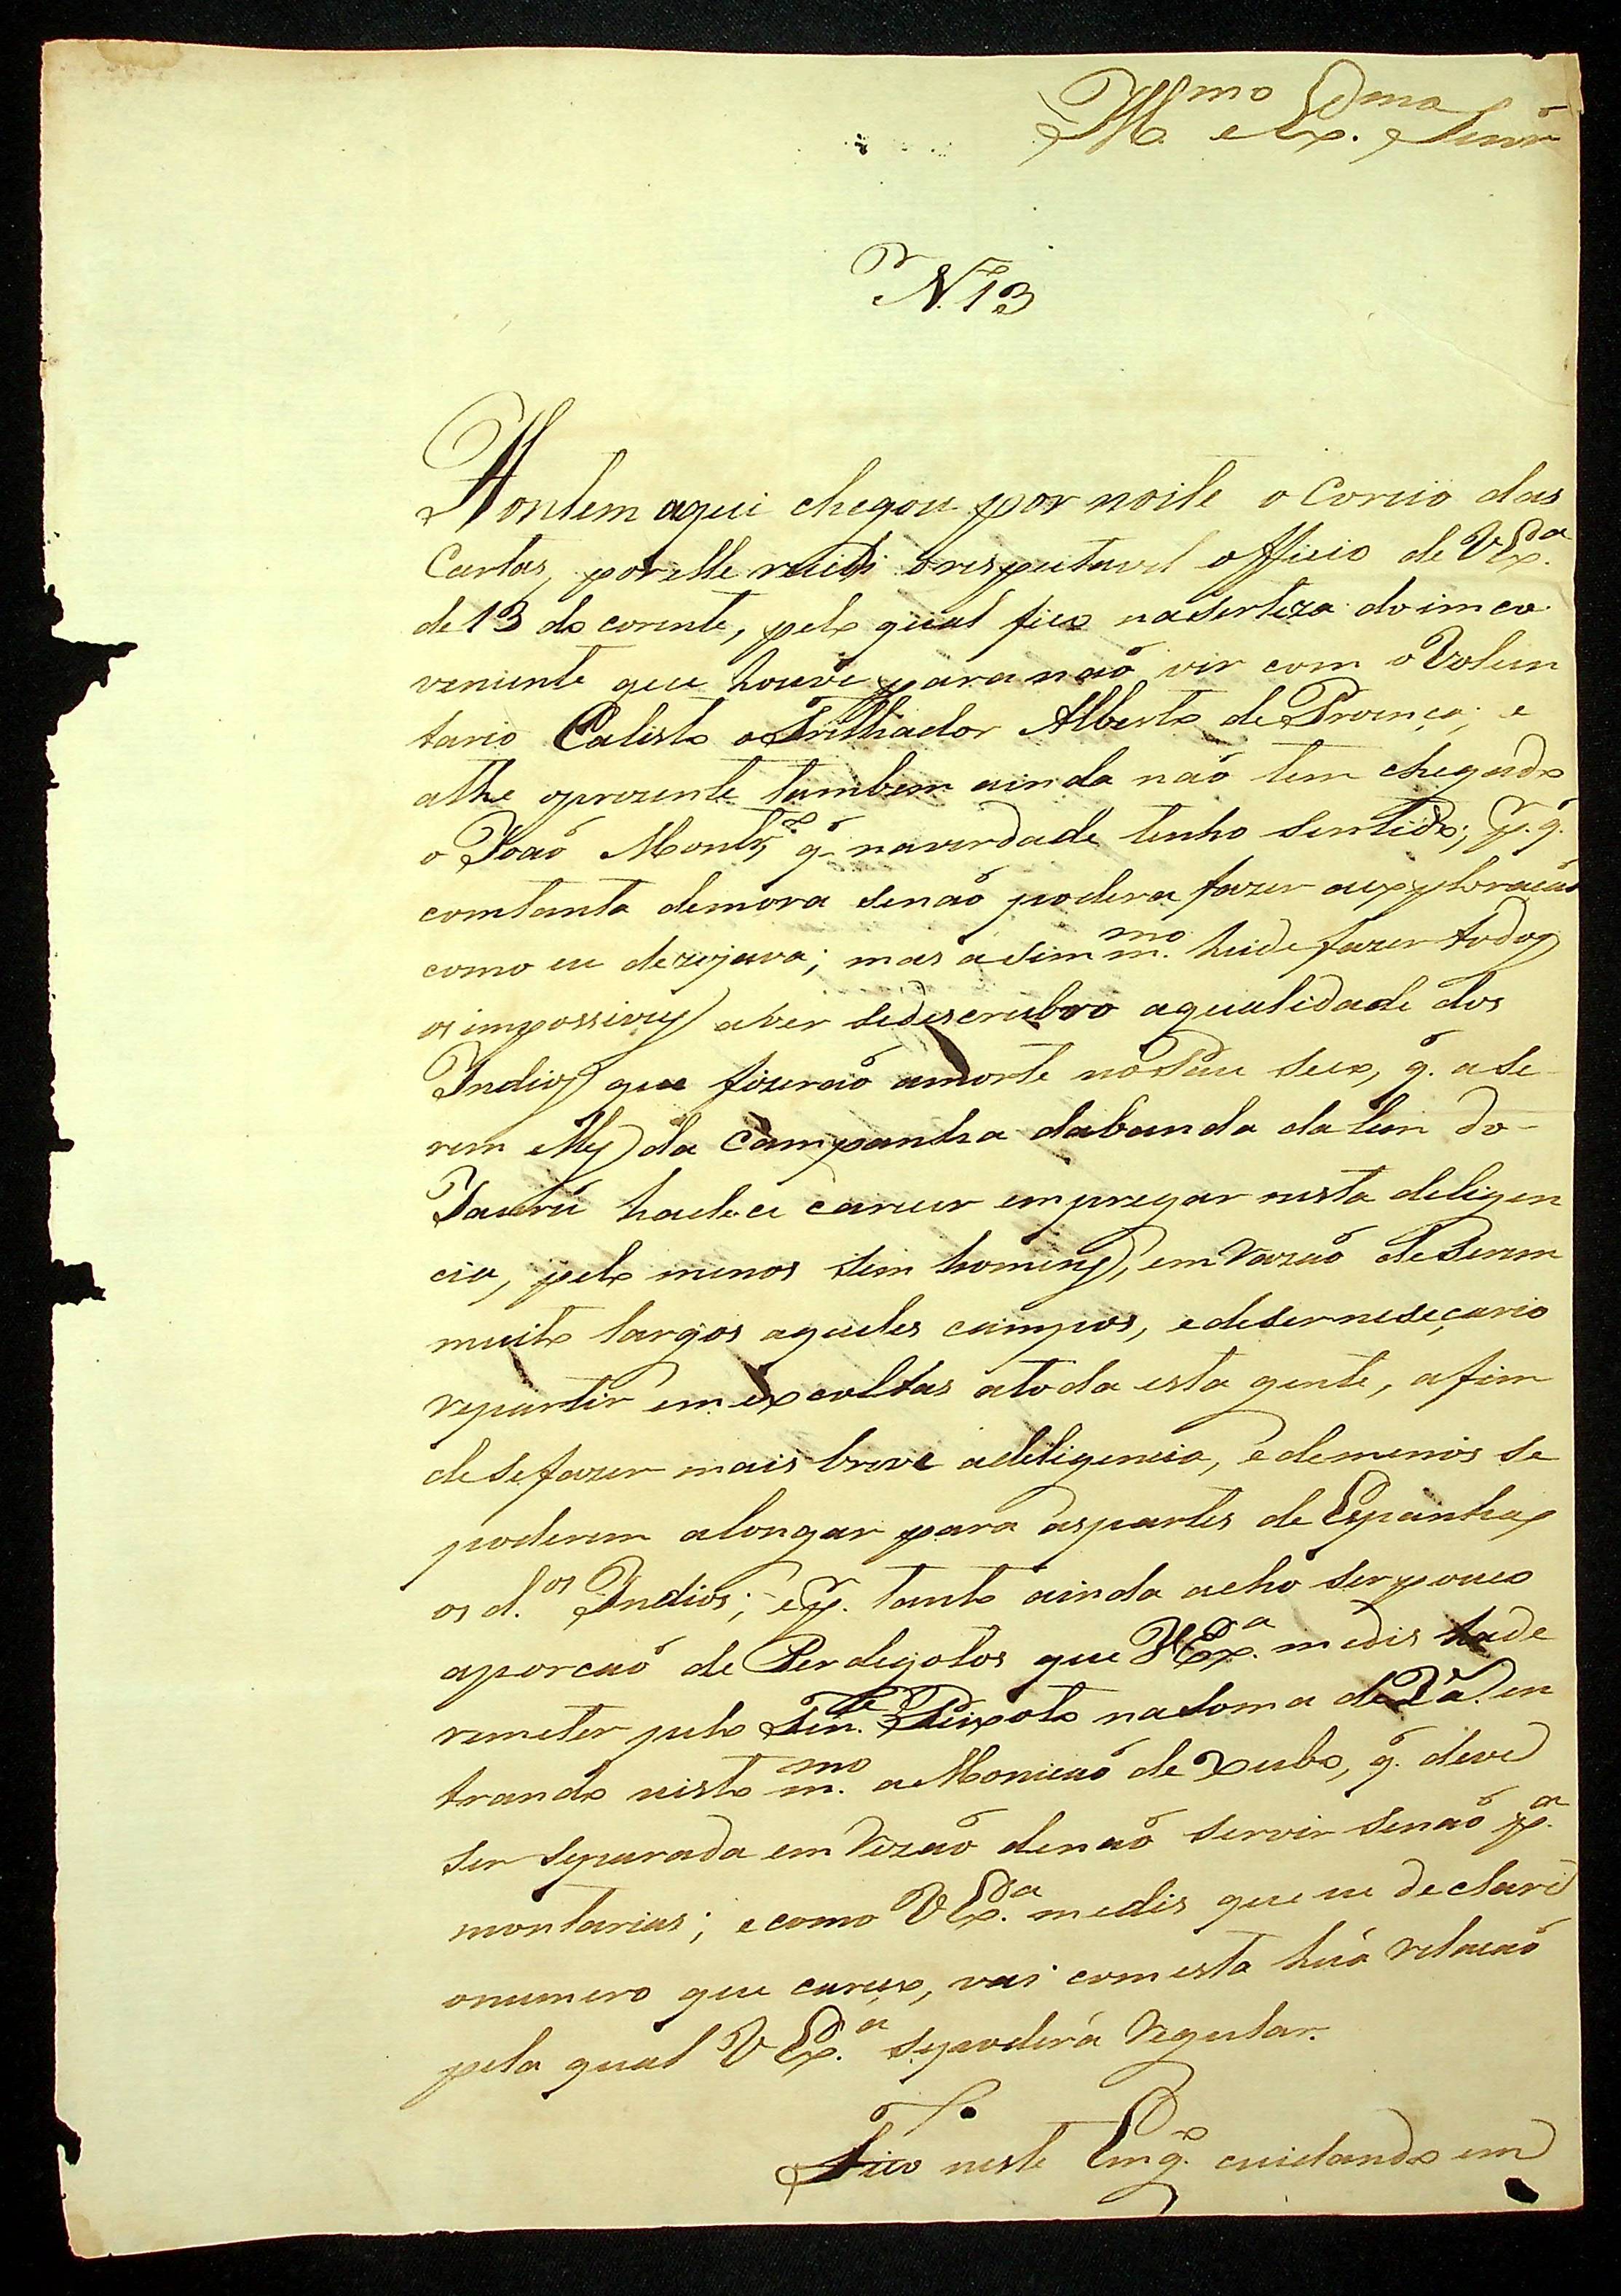 Ill.mo e Ex.mo Senr
N.13
Hontem aqui chegou por noite o Correio das
Cartas, por elle recibi o respeitavel officio de VEx.a
de 13 do corente, pelo qual fico na serteza do inco
veniente que houve para naõ vir com o Volun
tario Calisto o Trilhador Alberto de Proença; e
athe oprezente tambem ainda naõ tem chegado
o Joaõ Montr.o q̃ naverdade tenho sentido; p.q̃.
comtanta demora senaõ podera fazer aexploracaõ
como eu dezejava; mas asim m.mo heide fazer todos
os impossiveis aver sedescrubro aqualidade dos
Indios que fizeraõ amorte no Pau seco, q̃. a se
rem elles da Campanha dabanda dalem do
Jaurú hadece carecer empregar nesta deligen
cia, pelo menos sem homens, em razaõ deserem
muito largos aqueles campos, edeser neseçario
repartir em excoltas atoda esta gente, afim
desefazer mais breve adeligencia, edemenos se
poderem alongar para aspartes de Espanhas
os d.os Indios; e p. tanto ainda acho ser pouco
aporcaõ de Perdigotos que VEx.a medis hade
remeter pelo Ten.te Peixoto nasoma de 2 @. en
trando nisto m.mo a Monicaõ de xubo, q̃. deve
ser separada em rezaõ denaõ servir senaõ p.a
montarias; ecomo VEx.a medis que eu declare
onumero que careço, vai comesta huã relacaõ
pela qual VEx.a sepoderá regular.
Fico neste Emg.o cuidando em